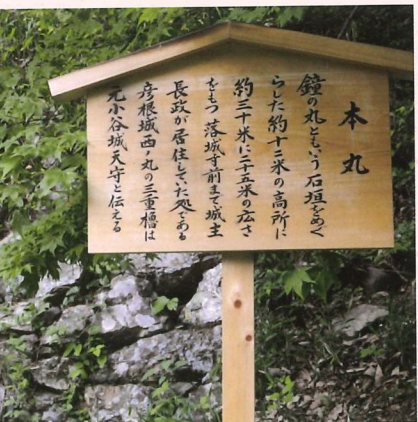 本丸
鐘の丸ともいう石垣をめぐ
らした約十二米の高所に
約三十米に二十五米の広さ
をもつ 落城寸前まで城主
長政が居住していた処である
彦根城西ノ丸の三重櫓は
元小谷城天守と伝える